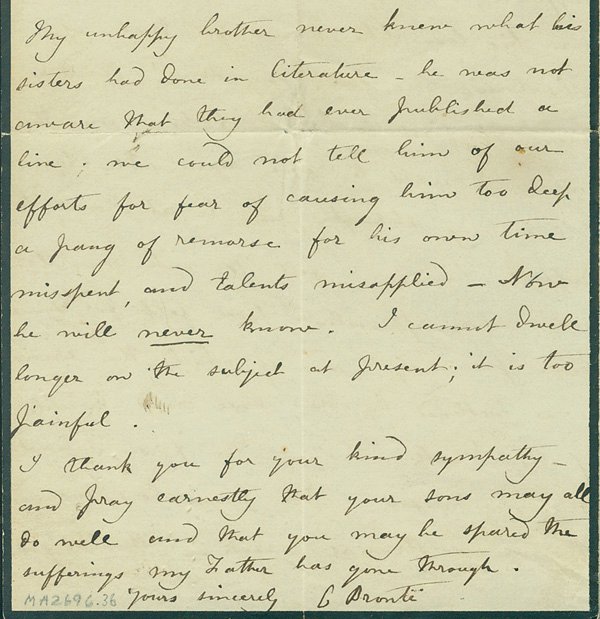 My unhappy brother never knew what his
sisters had done in literature – he was not
aware that they had ever published a
line; we could not tell him of our
efforts for fear of causing him too deep
a pang of remorse for his own time
misspent, and talents misapplied – Now
he will never know. I cannot dwell
longer on the subject at present; it is too
painful.
I thank you for your kind sympathy –
and pray earnestly that your sons may all
do well and that you may be spared the
sufferings my Father has gone through.
Yours sincerely C Brontë
MA2696.36